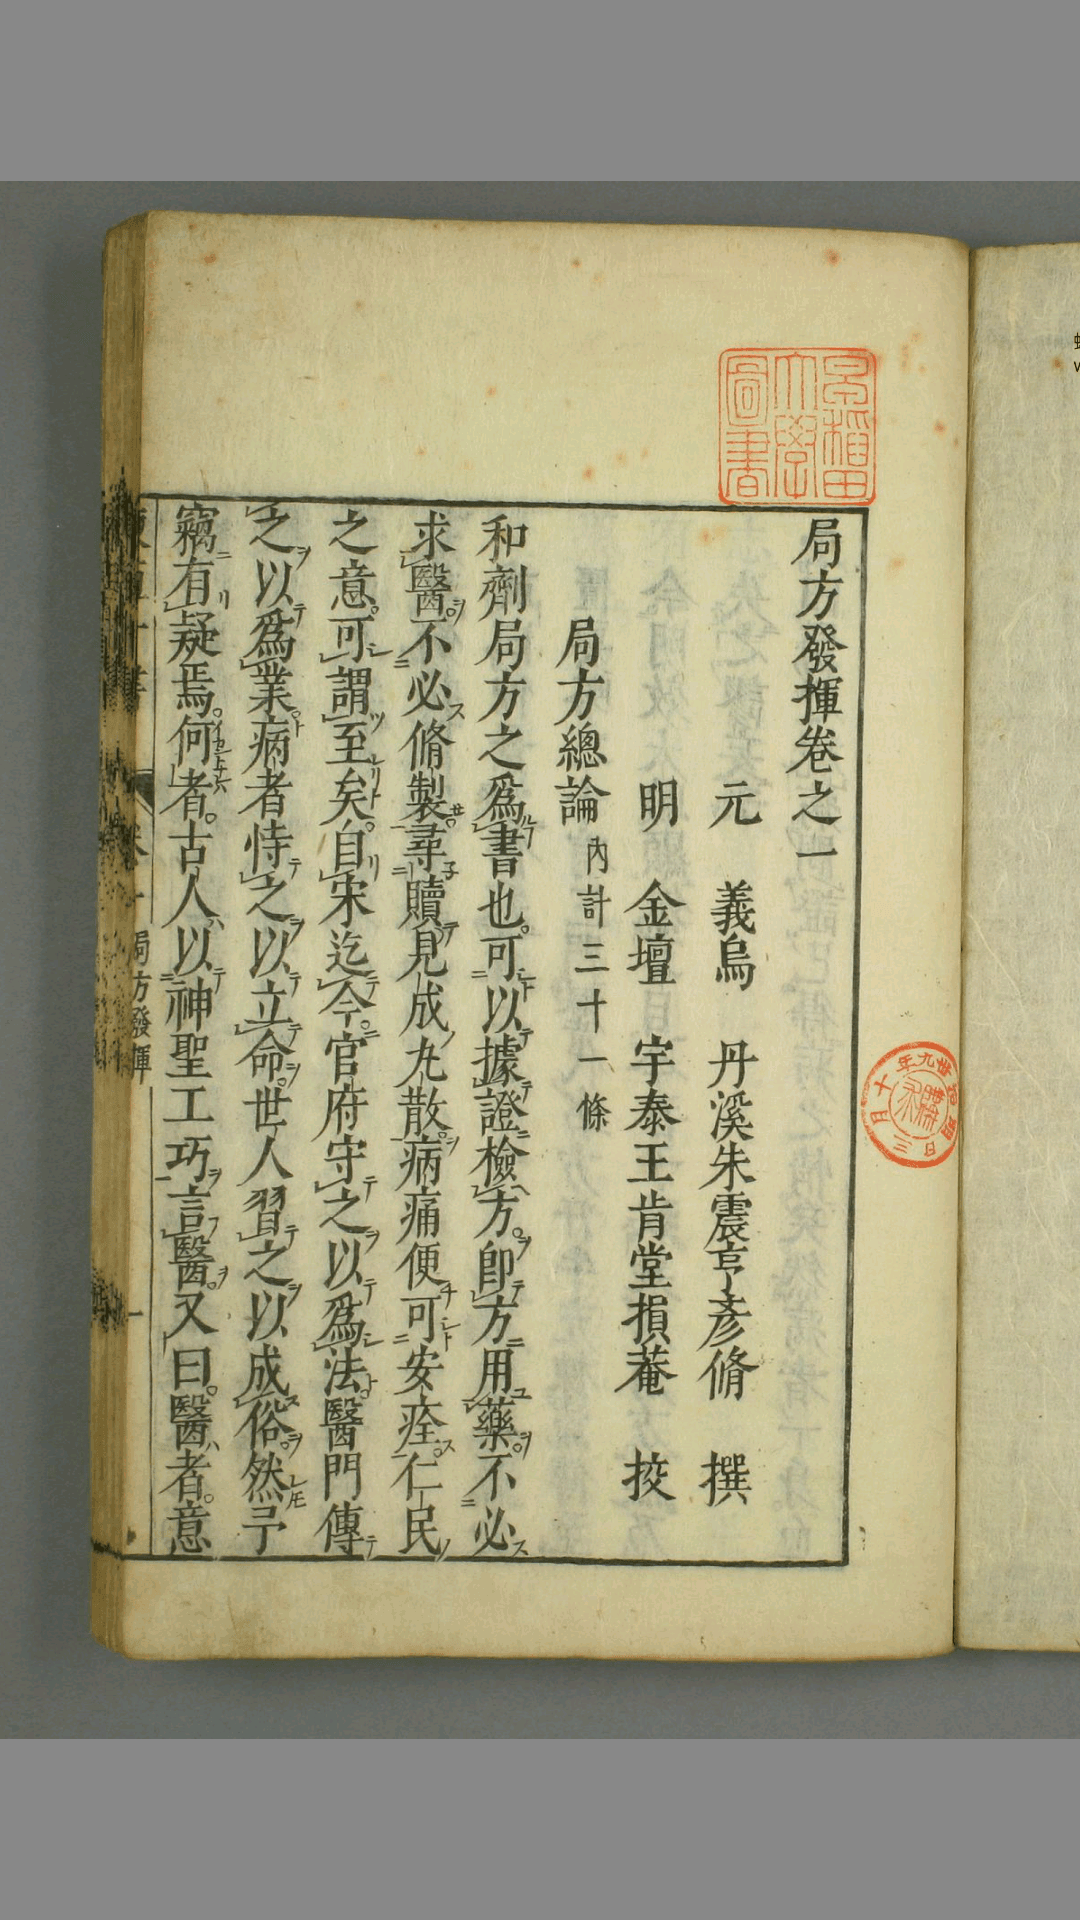 局方發揮卷之一
元 義烏 丹溪朱震亨彥脩 撰
明 金壇 宇泰王肯堂損菴 挍
局方總論 內計三十一條
和劑局方之爲書也可以據證檢方卽方用藥不必
求醫不必脩製尋贖見成九散病痛便可安痊仁民
之意可謂至矣自宋迄今官府守之以爲法醫門傳
之以爲業病者恃之以立命世人習之以成俗然予
竊有疑焉何者古人以神聖工巧言醫又曰醫者意
局方發揮 一
早稲田大學圖書
明治卅九年十月三日購求